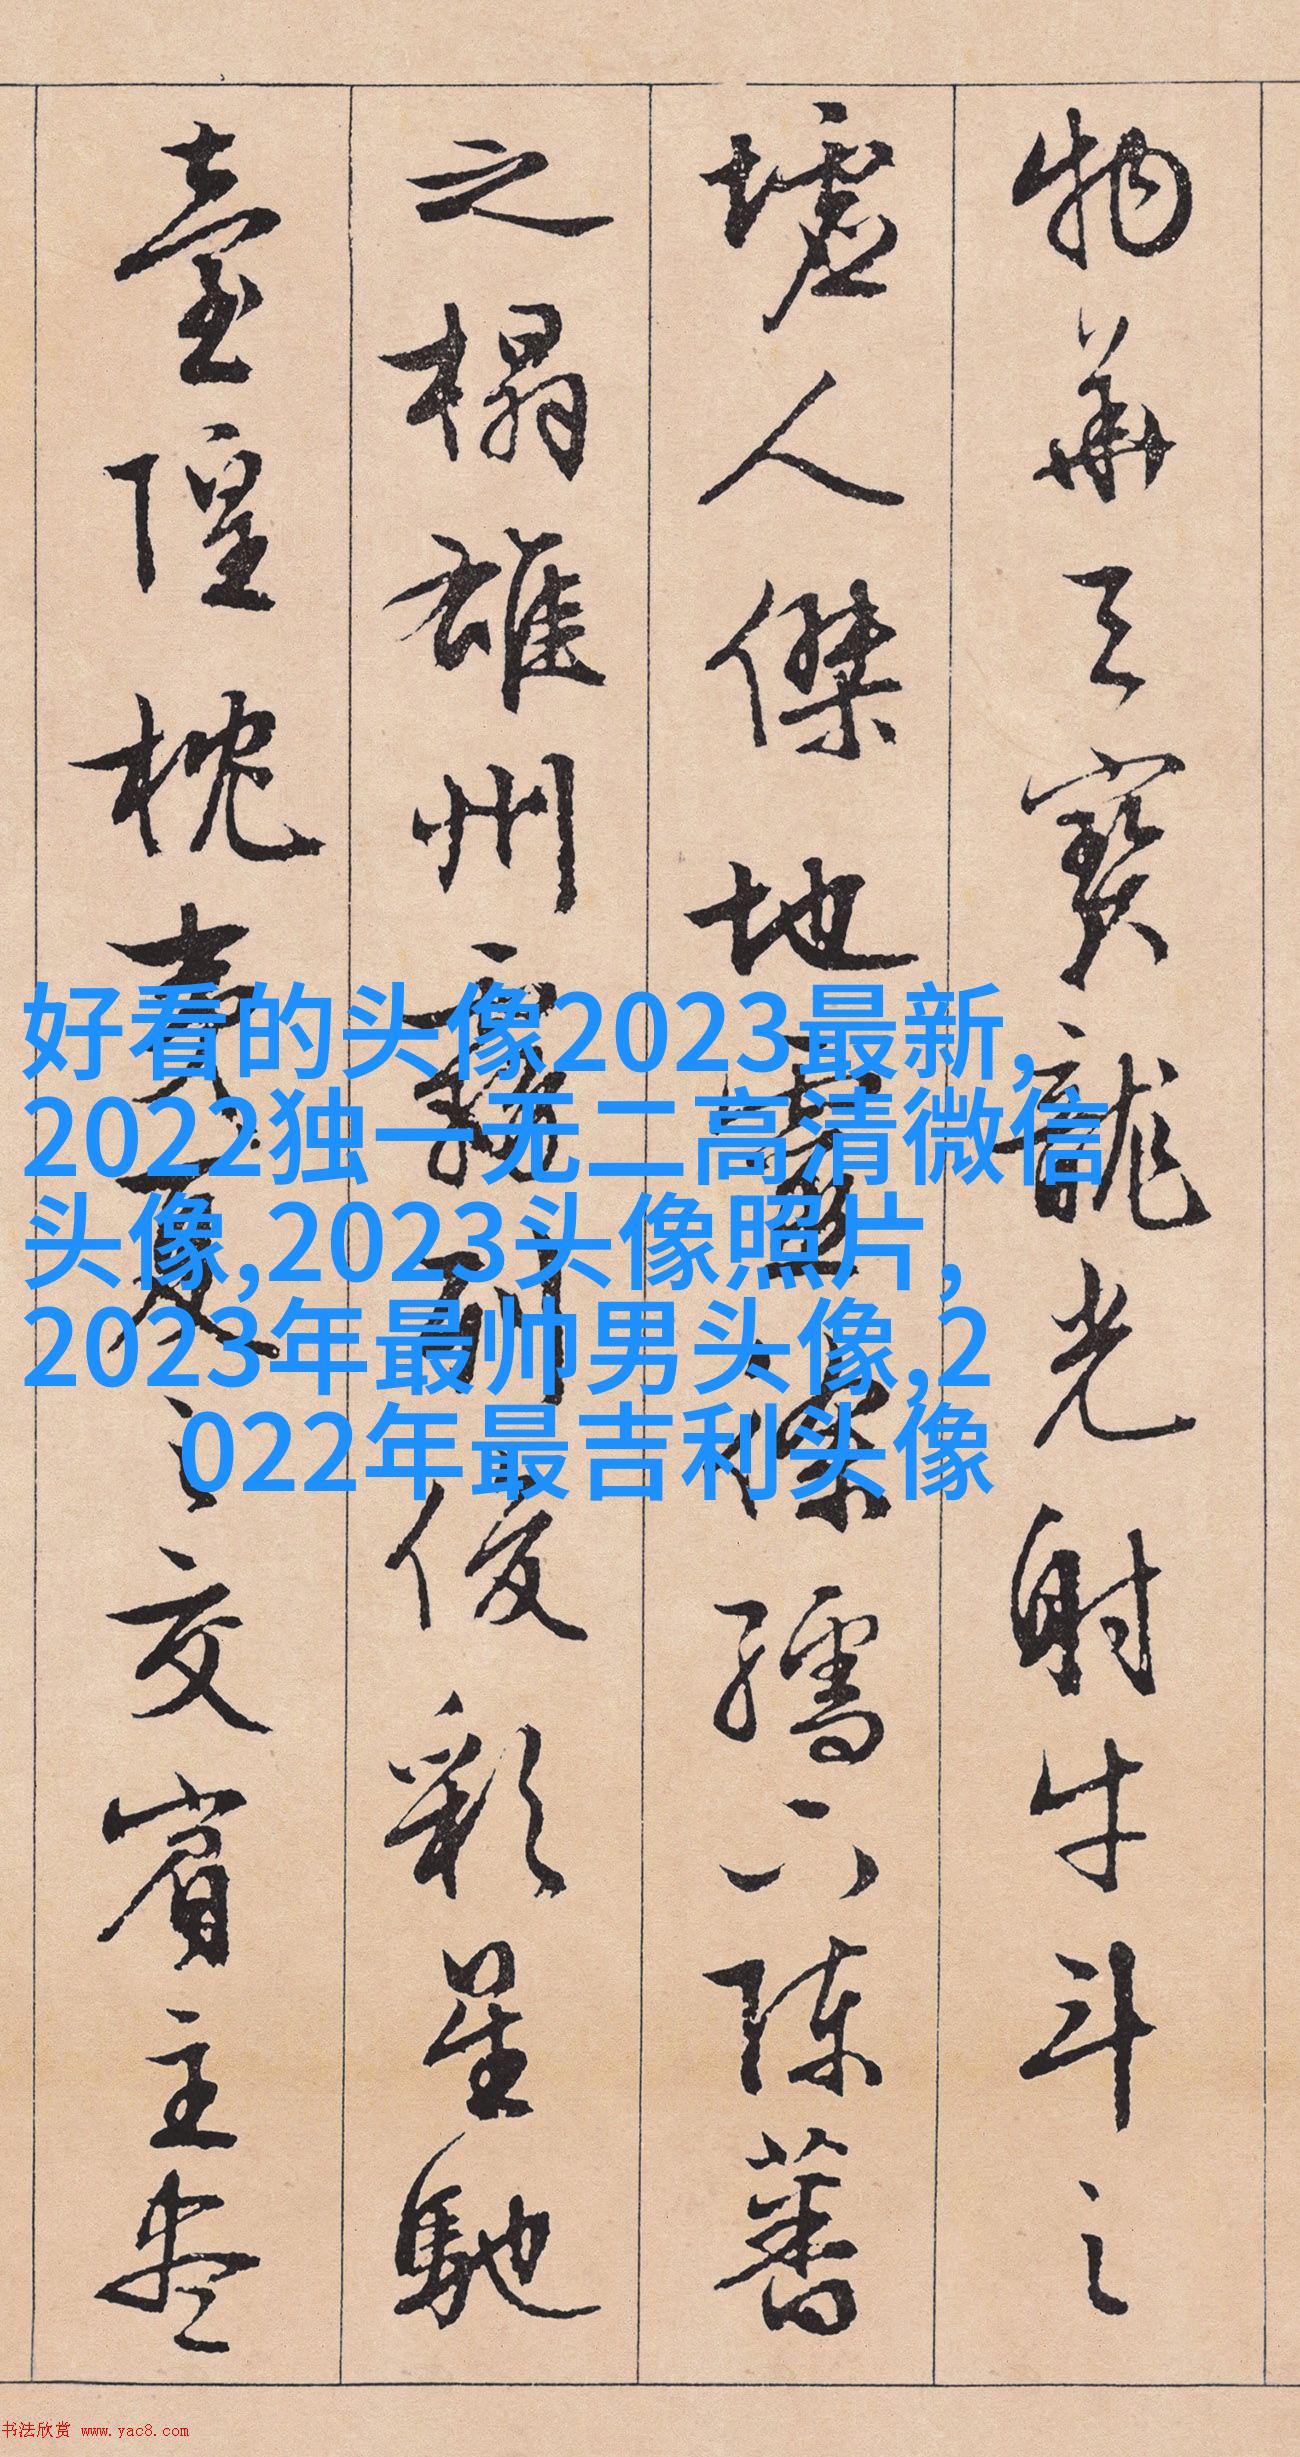 物華天寶龍光射牛斗之
墟人傑地靈徐孺下陳蕃
之榻雄州霧列俊彩星馳
臺隍枕夷夏之交賓主盡
好看的头像2023最新,
2022独一无二高清微信
头像,2023头像照片,
2023年最帅男头像,2
022年最吉利头像
书法欣赏 www.yac8.com